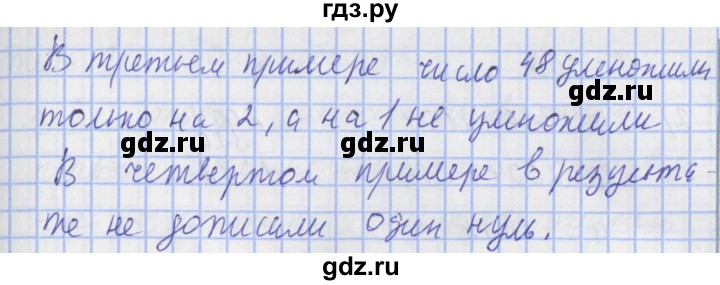 гдз.ру
В третьем примере число 48 умножили
только на 2, а на 1 не умножили
gdz.ru gdz.ru
В четвертом примере в результа-
те не дописали один нуль.
gdz.ru gdz.ru
gdz.ru